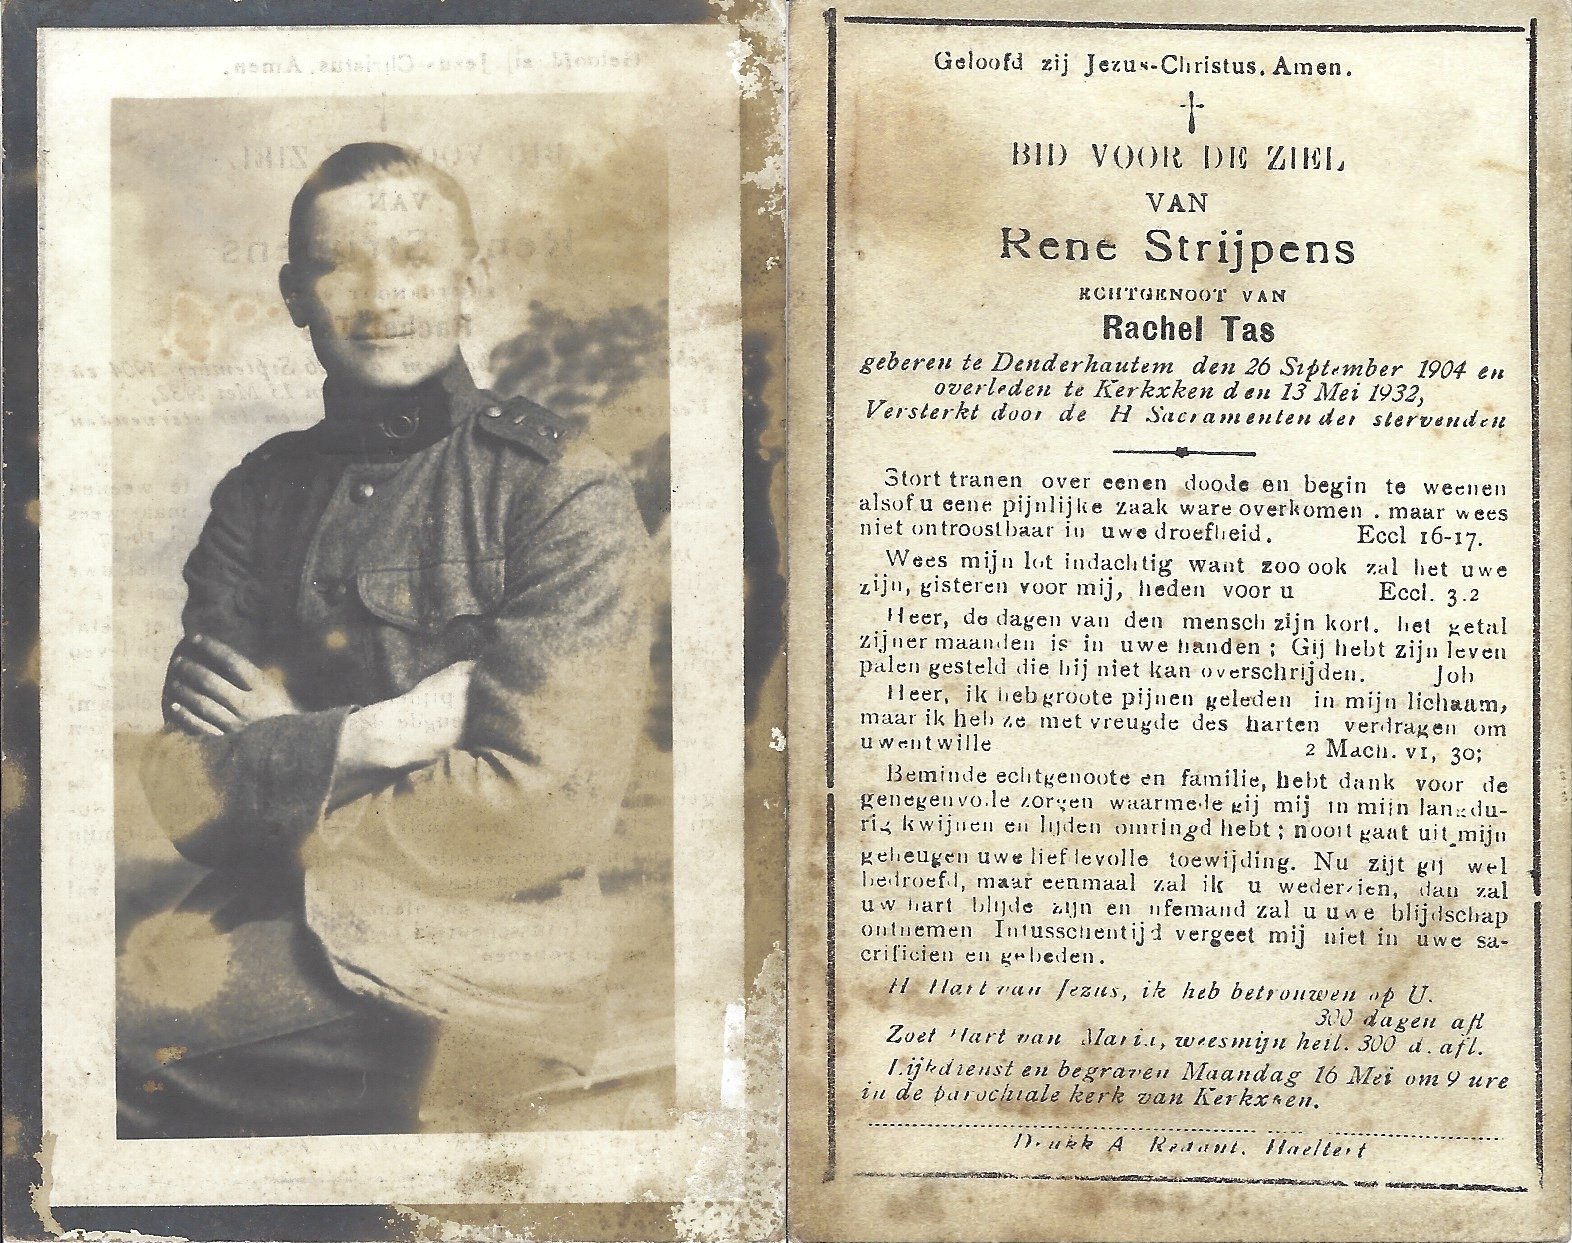 Geloofd zij Jezus-Christus. Amen.
BID VOOR DE ZIEL
VAN
Rene Strijpens
ECHTGENOOT VAN
Rachel Tas
geberen te Denderhautem den 26 September 1904 en
overleden te Kerkxken den 13 Mei 1932,
Versterkt door de H Sacramenten der stervenden
Stort tranen over eenen doode en begin te weenen
alsof u eene pijnlijke zaak ware overkomen . maar wees
niet ontroostbaar in uwe droefheid. Eccl 16-17.
Wees mijn lot indachtig want zoo ook zal het uwe
zijn, gisteren voor mij, heden voor u Eccl. 3.2
Heer, de dagen van den mensch zijn kort. het getal
zijner maanden is in uwe handen ; Gij hebt zijn leven
palen gesteld die hij niet kan overschrijden. Job
Heer, ik heb groote pijnen geleden in mijn lichaam,
maar ik heb ze met vreugde des harten verdragen om
uwentwille 2 Mach. VI, 30;
Beminde echtgenoote en familie, hebt dank voor de
genegenvolle zorgen waarmede gij mij in mijn langdu-
rig kwijnen en lijden omringd hebt ; nooit gaat uit mijn
geheugen uwe liefdevolle toewijding. Nu zijt gij wel
bedroefd, maar eenmaal zal ik u wederzien, dan zal
uw hart blijde zijn en niemand zal u uwe blijdschap
ontnemen Intusschentijd vergeet mij niet in uwe sa-
crificien en gebeden.
H Hart van Jezus, ik heb betrouwen op U.
300 dagen afl
Zoet Hart van Maria, wees mijn heil. 300 d. afl.
Lijkdienst en begraven Maandag 16 Mei om 9 ure
in de parochiale kerk van Kerkxken.
Drukk A Redant. Haeltert